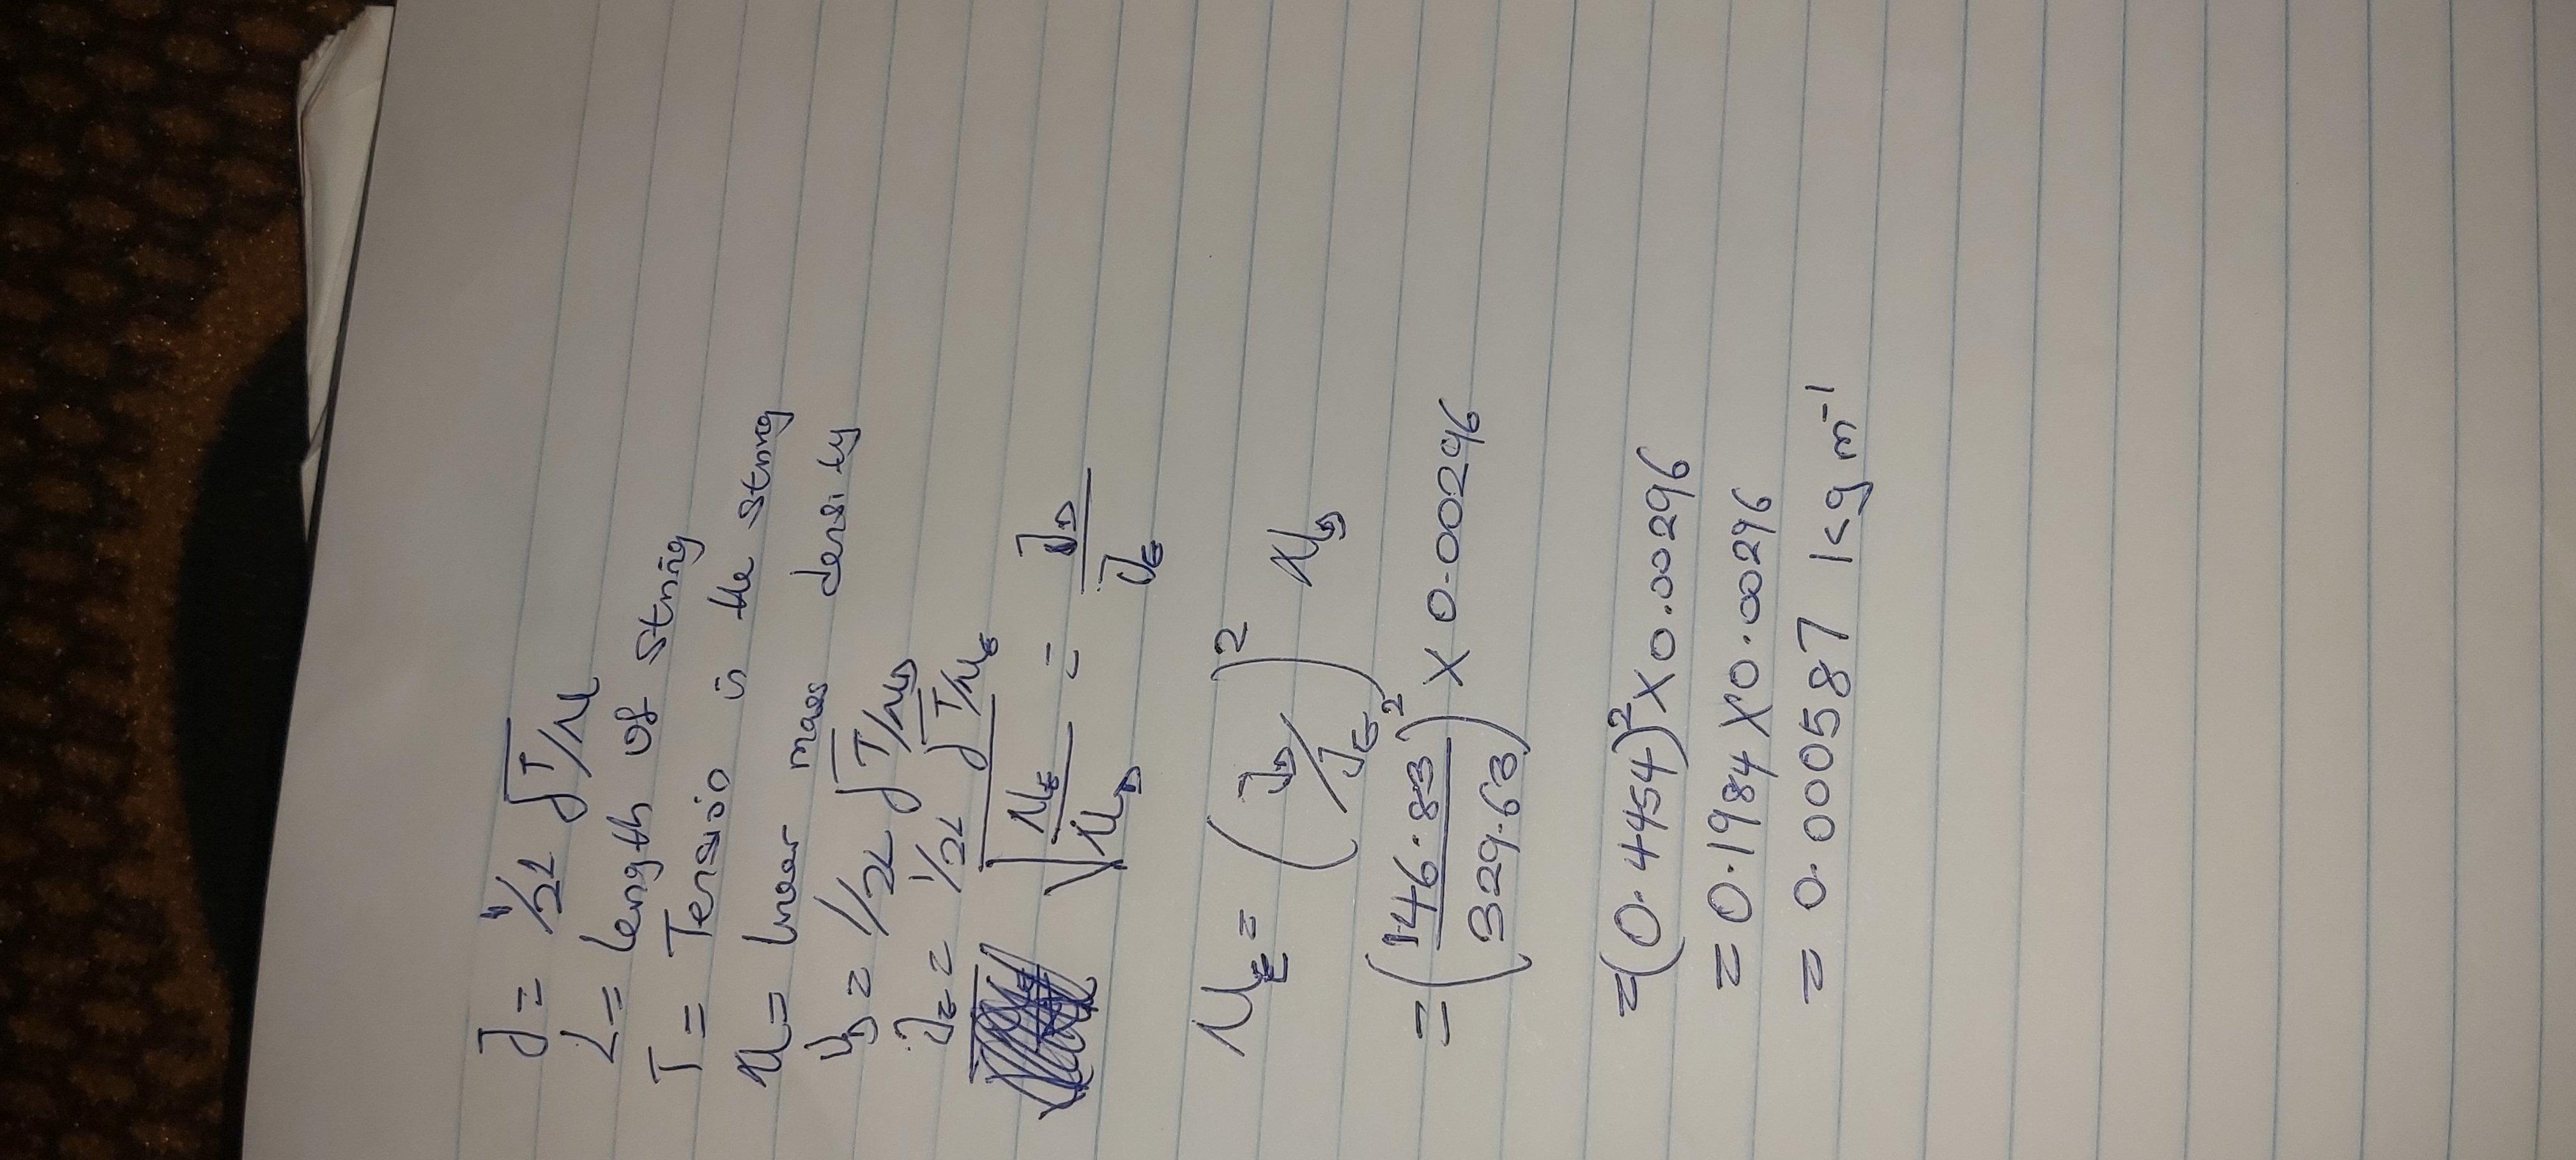 f = 1/2L √T/μ
L = length of string
T = Tension in the string
μ = linear mass density
fD = 1/2L √T/μD
fE = 1/2L √T/μE
√μE/μD = fD/fE
μE = (fD/fE)² μD
= (146.83/329.63)² × 0.00296
= (0.4454)² × 0.00296
= 0.1984 × 0.00296
= 0.000587 kg m⁻¹